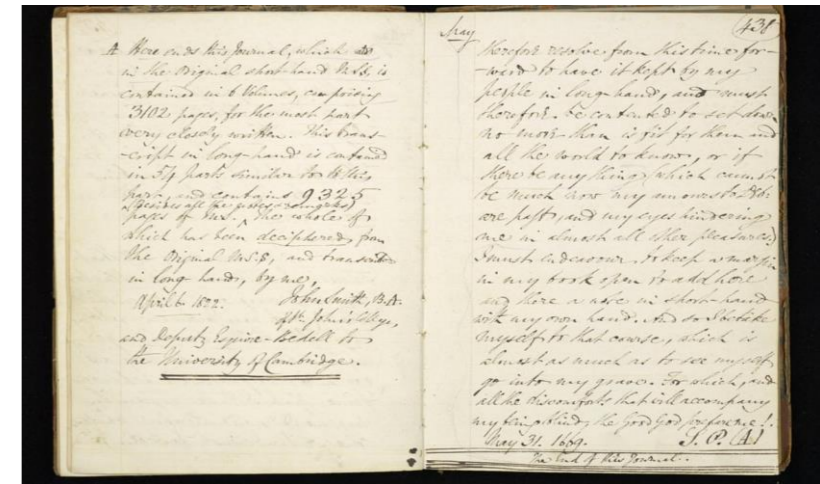 A Here ends this Journal, which
in the Original short-hand M.S.S. is
contained in 6 Volumes, comprising
3102 pages, for the most part
very closely written. This trans-
-cript in long-hand is contained
in 54 parts similar to this
part, and contains 9325
(besides all the notes
pages of M.S. ^ the whole of
which has been deciphered, from
the Original M.S.S, and transcribed
in long hand, by me,
April 6 1822. John Smith, B.A.
of St. John's College,
and Deputy Esquire-Bedell to
the University of Cambridge.
May (438)
therefore resolve from this time for-
-ward to have it kept by my
people in long-hand, and must
therefore be contented to set down
no more than is fit for them and
all the world to know, or if
there be any thing (which cannot
be much now my amours to Deb:
are past, and my eyes hindering
me in almost all other pleasures)
I must endeavour to keep a margin
in my book open to add here
and there a note in short-hand
with my own hand. And so I betake
myself to that course, which is
almost as much as to see myself
go into my grave. For which, and
all the discomforts that will accompany
my being blind, the Good God prepare me!.
May 31. 1669. S. P. (A)
The End of this Journal.